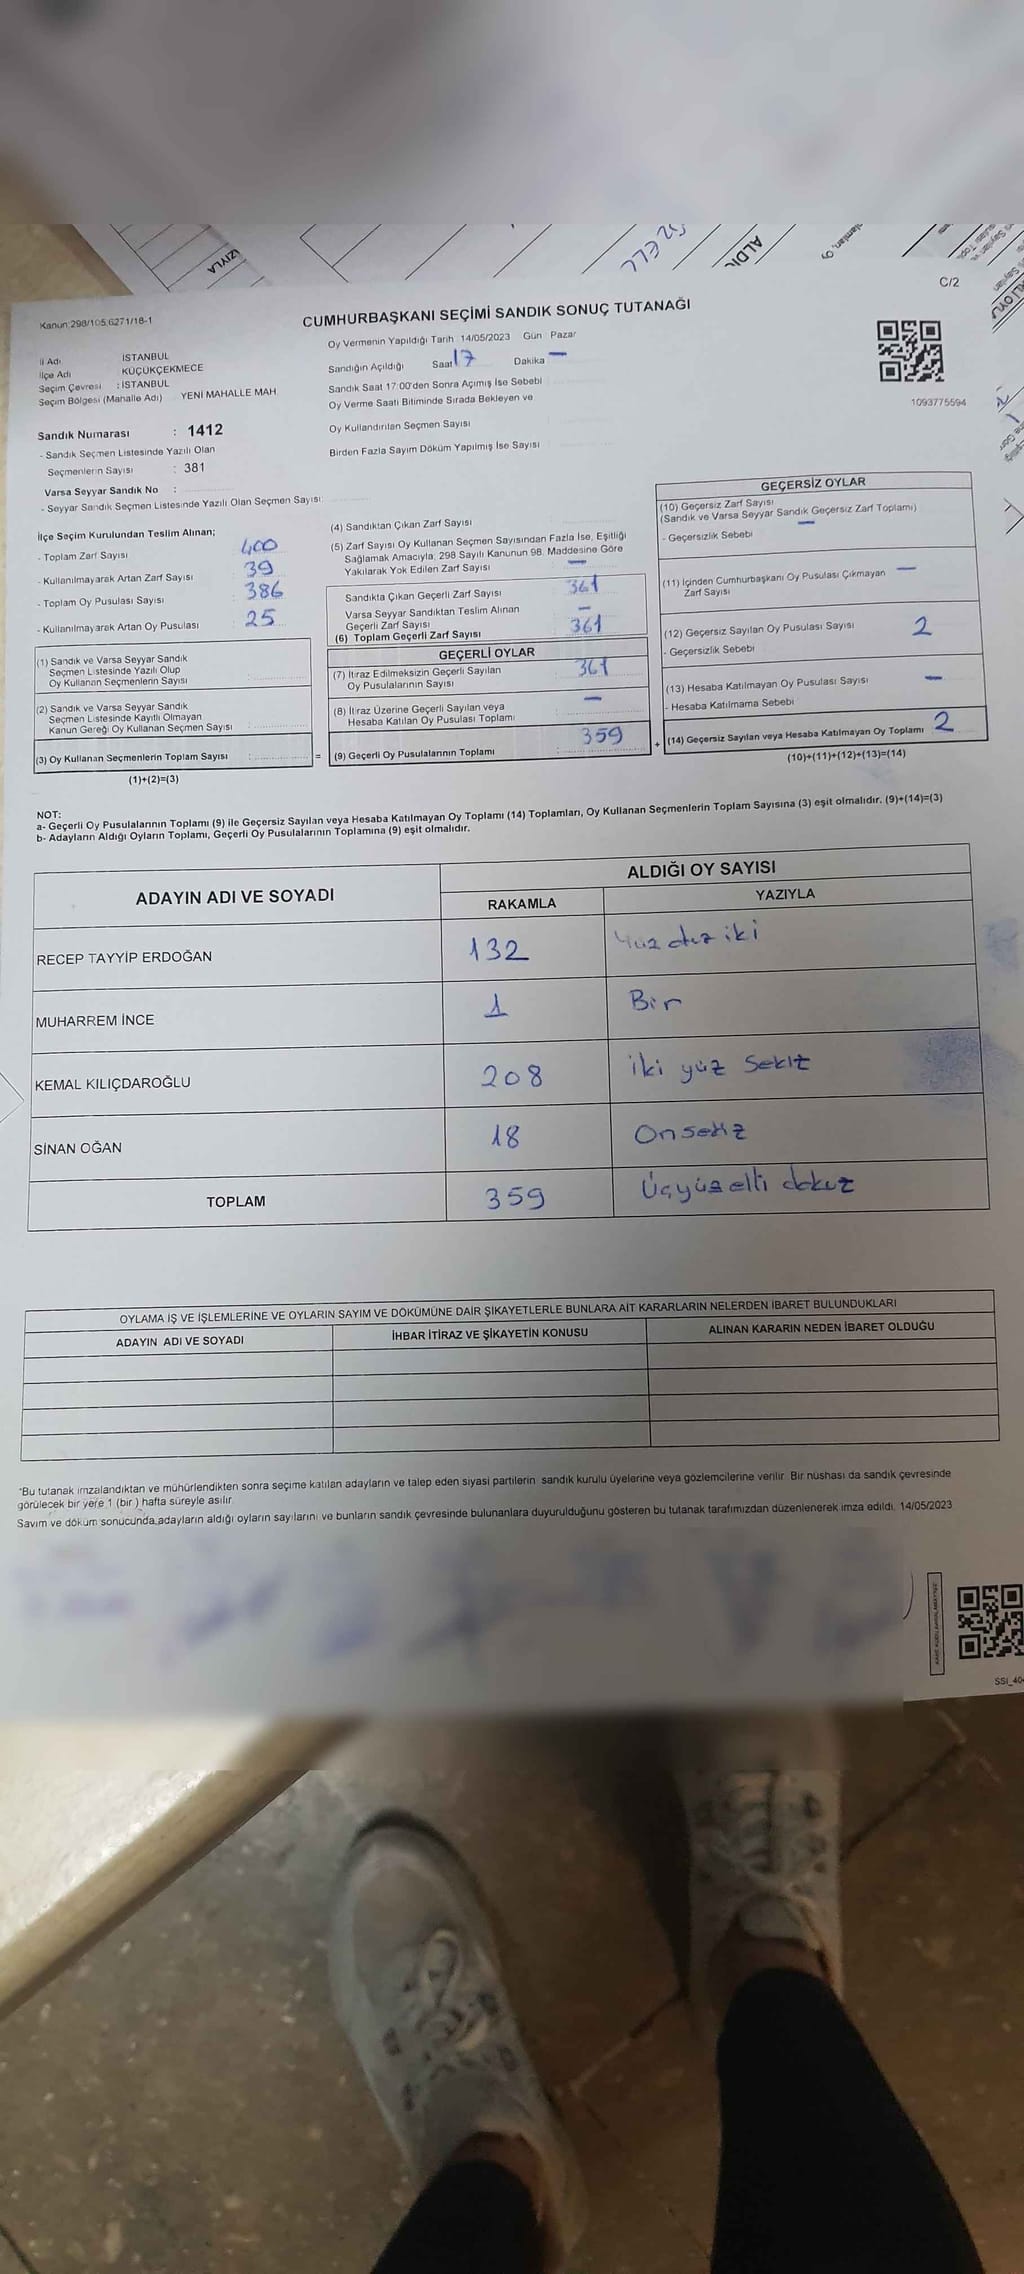 YAZIYLA
ALDIĞ
C/2
Kanun:298/105,6271/18-1
CUMHURBAŞKANI SEÇİMİ SANDIK SONUÇ TUTANAĞI
1093775594
İl Adı İSTANBUL
İlçe Adı KÜÇÜKÇEKMECE
Seçim Çevresi : İSTANBUL
Seçim Bölgesi (Mahalle Adı) YENİ MAHALLE MAH
Sandık Numarası : 1412
- Sandık Seçmen Listesinde Yazılı Olan
Seçmenlerin Sayısı : 381
Varsa Seyyar Sandık No :
- Seyyar Sandık Seçmen Listesinde Yazılı Olan Seçmen Sayısı:
Oy Vermenin Yapıldığı Tarih : 14/05/2023 Gün : Pazar
Sandığın Açıldığı Saat 17 Dakika —
Sandık Saat 17:00'den Sonra Açımış İse Sebebi
Oy Verme Saati Bitiminde Sırada Bekleyen ve
Oy Kullandırılan Seçmen Sayısı
Birden Fazla Sayım Döküm Yapılmış İse Sayısı
İlçe Seçim Kurulundan Teslim Alınan;
- Toplam Zarf Sayısı : 400
- Kullanılmayarak Artan Zarf Sayısı : 39
- Toplam Oy Pusulası Sayısı : 386
- Kullanılmayarak Artan Oy Pusulası : 25
(1) Sandık ve Varsa Seyyar Sandık
Seçmen Listesinde Yazılı Olup
Oy Kullanan Seçmenlerin Sayısı :
(2) Sandık ve Varsa Seyyar Sandık
Seçmen Listesinde Kayıtlı Olmayan
Kanun Gereği Oy Kullanan Seçmen Sayısı :
(3) Oy Kullanan Seçmenlerin Toplam Sayısı :
(1)+(2)=(3)
(4) Sandıktan Çıkan Zarf Sayısı
(5) Zarf Sayısı Oy Kullanan Seçmen Sayısından Fazla İse, Eşitliği
Sağlamak Amacıyla; 298 Sayılı Kanunun 98. Maddesine Göre
Yakılarak Yok Edilen Zarf Sayısı —
Sandıkta Çıkan Geçerli Zarf Sayısı 361
Varsa Seyyar Sandıktan Teslim Alınan
Geçerli Zarf Sayısı —
(6) Toplam Geçerli Zarf Sayısı 361
GEÇERLİ OYLAR
(7) İtiraz Edilmeksizin Geçerli Sayılan
Oy Pusulalarının Sayısı 361
(8) İtiraz Üzerine Geçerli Sayılan veya
Hesaba Katılan Oy Pusulası Toplamı —
= (9) Geçerli Oy Pusulalarının Toplamı : 359
GEÇERSİZ OYLAR
(10) Geçersiz Zarf Sayısı
(Sandık ve Varsa Seyyar Sandık Geçersiz Zarf Toplamı)
—
- Geçersizlik Sebebi
(11) İçinden Cumhurbaşkanı Oy Pusulası Çıkmayan —
Zarf Sayısı
(12) Geçersiz Sayılan Oy Pusulası Sayısı 2
- Geçersizlik Sebebi
(13) Hesaba Katılmayan Oy Pusulası Sayısı —
- Hesaba Katılmama Sebebi
+ (14) Geçersiz Sayılan veya Hesaba Katılmayan Oy Toplamı 2
(10)+(11)+(12)+(13)=(14)
NOT:
a- Geçerli Oy Pusulalarının Toplamı (9) ile Geçersiz Sayılan veya Hesaba Katılmayan Oy Toplamı (14) Toplamları, Oy Kullanan Seçmenlerin Toplam Sayısına (3) eşit olmalıdır. (9)+(14)=(3)
b- Adayların Aldığı Oyların Toplamı, Geçerli Oy Pusulalarının Toplamına (9) eşit olmalıdır.
ADAYIN ADI VE SOYADI
ALDIĞI OY SAYISI
RAKAMLA YAZIYLA
RECEP TAYYİP ERDOĞAN 132 Yüz otuz iki
MUHARREM İNCE 1 Bir
KEMAL KILIÇDAROĞLU 208 iki yüz sekiz
SİNAN OĞAN 18 Onsekiz
TOPLAM 359 Üçyüzelli dokuz
OYLAMA İŞ VE İŞLEMLERİNE VE OYLARIN SAYIM VE DÖKÜMÜNE DAİR ŞİKAYETLERLE BUNLARA AİT KARARLARIN NELERDEN İBARET BULUNDUKLARI
ADAYIN ADI VE SOYADI İHBAR İTİRAZ VE ŞİKAYETİN KONUSU ALINAN KARARIN NEDEN İBARET OLDUĞU
*Bu tutanak imzalandıktan ve mühürlendikten sonra seçime katılan adayların ve talep eden siyasi partilerin sandık kurulu üyelerine veya gözlemcilerine verilir. Bir nüshası da sandık çevresinde
görülecek bir yere 1 (bir) hafta süreyle asılır.
Sayım ve döküm sonucunda adayların aldığı oyların sayılarını ve bunların sandık çevresinde bulunanlara duyurulduğunu gösteren bu tutanak tarafımızdan düzenlenerek imza edildi. 14/05/2023
SSI_40